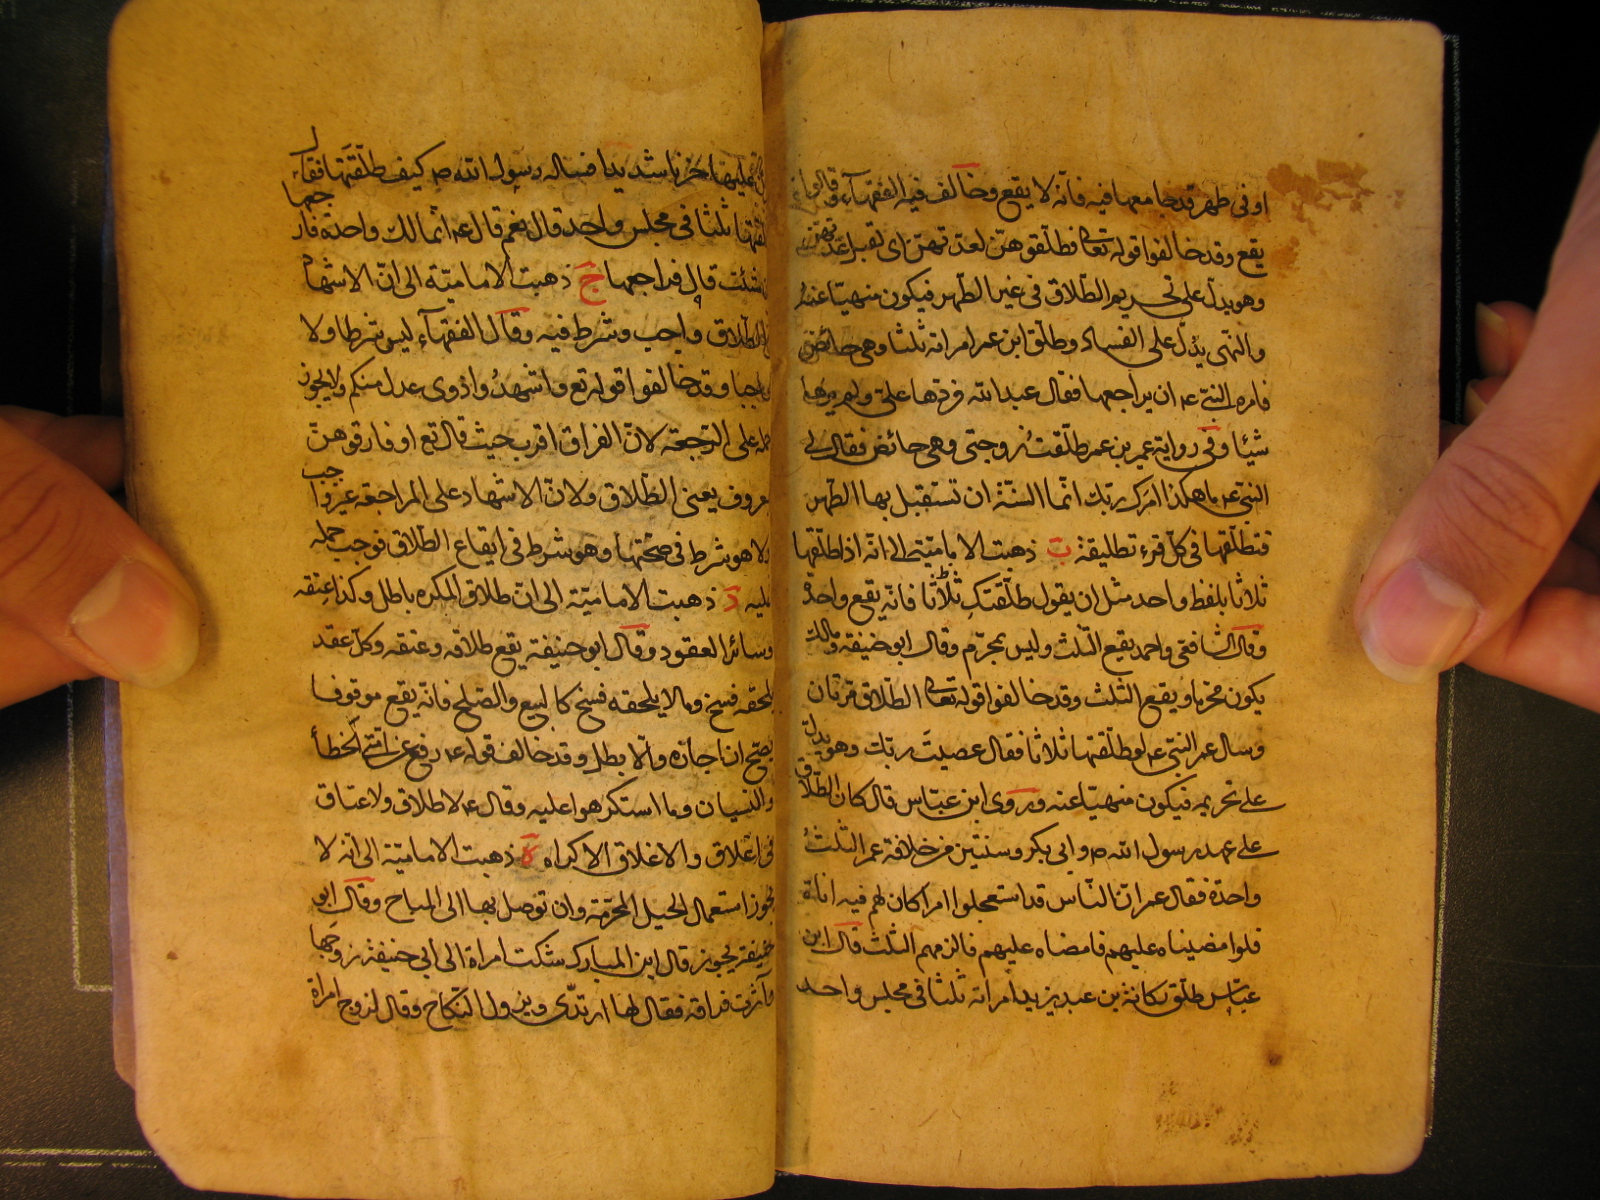 او فى طهر قد جامعها فيه فانّه لا يقع وخالف فيه الفقهاء وقالوا
يقع وقد خالفوا قوله تعالى فطلّقوهنّ لعدّتهنّ اى لقبل عدّتهنّ
وهو يدلّ على تحريم الطّلاق فى غير الطّهر فيكون منهيّا عنه
والنهى يدلّ على الفساد وطلّق ابن عمر امراته ثلثا وهى حائض
فامره النبىّ ع ان يراجعها فقال عبد الله فردّها علىّ ولم يرها
شيئا وفى رواية عمير بن عمر طلّقت زوجتى وهى حائض فقال لى
النبىّ ع ما هكذا امرك ربّك انّما السنّة ان تستقبل بها الطّهر
فتطلّقها فى كلّ قرء تطليقة ب ذهبت الاماميّة الى انّه اذا طلّقها
ثلاثا بلفظ واحد مثل ان يقول طلّقتك ثلاثا فانّه يقع واحدة
وقال الشافعى واحمد يقع الثّلث وليس بمحرّم وقال ابو حنيفة ومالك
يكون محرّما ويقع الثلث وقد خالفوا قوله تعالى الطّلاق مرّتان
وسال عمر النبىّ ع لو طلّقتها ثلاثا فقال عصيت ربّك وهو يدلّ
على تحريمه فيكون منهيّا عنه وروى ابن عبّاس قال كان الطّلاق
على عهد رسول الله ص وابى بكر وسنتين من خلافة عمر الثلث
واحدة فقال عمر انّ النّاس قد استعجلوا امرا كان لهم فيه اناة
فلو امضيناه عليهم فامضاه عليهم فالزمهم الثلث قال ابن
عبّاس طلّق ركانة بن عبد يزيد امراته ثلثا فى مجلس واحد
عليها حزنا شديدا فساله رسول الله ص كيف طلّقتها فقال
طلّقتها ثلثا فى مجلس واحد قال نعم قال ع انّما تلك واحدة فارجعها
ان شئت قال فراجعها ج ذهبت الاماميّة الى انّ الاشهاد
فى الطّلاق واجب وشرط فيه وقال الفقهاء ليس شرطا ولا
واجبا وقد خالفوا قوله تع واشهدوا ذوى عدل منكم ولا يجوز
حمله على الرّجعة لانّ الفراق اقرب حيث قال تع او فارقوهنّ
بمعروف يعنى الطّلاق ولانّ الاشهاد على المراجعة غير واجب
ولا هو شرط فى صحّتها وهو شرط فى ايقاع الطّلاق فوجب حمله
عليه د ذهبت الاماميّة الى انّ طلاق المكره باطل وكذا عتقه
وسائر العقود وقال ابو حنيفة يقع طلاقه وعتقه وكلّ عقد
يلحقه فسخ وما لا يلحقه فسخ كالبيع والصّلح فانّه يقع موقوفا
يصحّ ان اجازه والّا بطل وقد خالف قوله ع رفع عن امّتى الخطأ
والنسيان وما استكرهوا عليه وقال ع لا طلاق ولا عتاق
فى اغلاق والاغلاق الاكراه ه ذهبت الاماميّة الى انّه لا
يجوز استعمال الحيل المحرّمة وان توصل بها الى المباح وقال ابو
حنيفة يجوز قال ابن المبارك شكت امراة الى ابى حنيفة زوجها
وآثرت فراقه فقال لها ارتدّى ويزول النّكاح وقال لزوج امراة